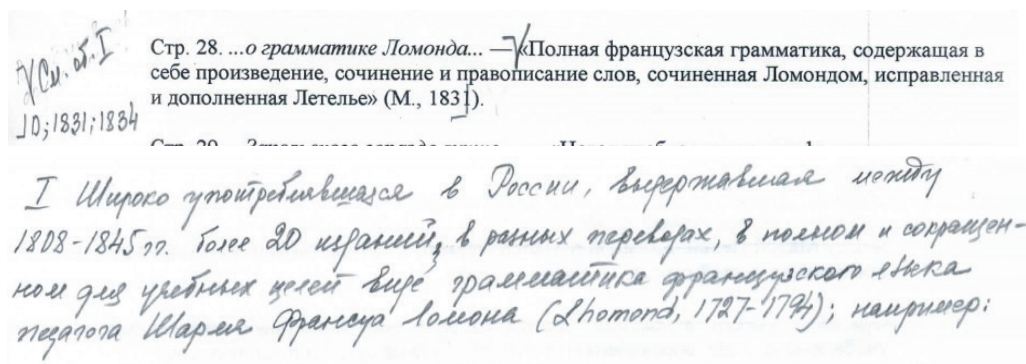 √ См. об. I
Стр. 28. ...о грамматике Ломонда... — «Полная французская грамматика, содержащая в
себе произведение, сочинение и правописание слов, сочиненная Ломондом, исправленная
и дополненная Летелье» (М., 1831).
10; 1831; 1834
I Широко употреблявшаяся в России, выдержавшая между
1808-1845 гг. более 20 изданий, в разных переводах, в полном и сокращен-
ном для учебных целей виде грамматика французского языка
педагога Шарля Франсуа Ломона (Lhomond, 1727-1794); например: